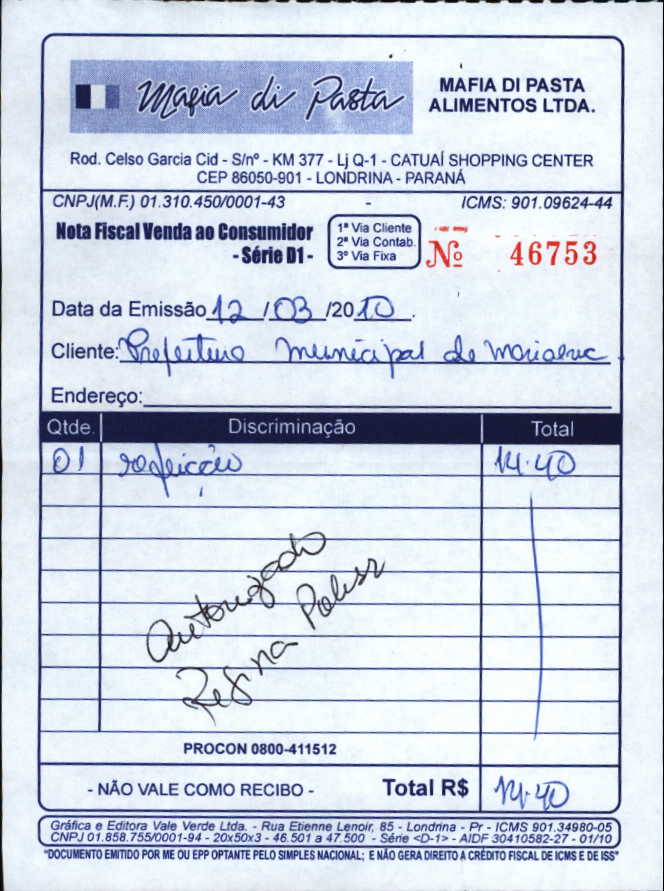 Mafia di Pasta
MAFIA DI PASTA
ALIMENTOS LTDA.
Rod. Celso Garcia Cid - S/nº - KM 377 - Lj Q-1 - CATUAÍ SHOPPING CENTER
CEP 86050-901 - LONDRINA - PARANÁ
CNPJ(M.F.) 01.310.450/0001-43 - ICMS: 901.09624-44
Nota Fiscal Venda ao Consumidor
- Série D1 -
1ª Via Cliente
2ª Via Contab.
3º Via Fixa
Nº 46753
Data da Emissão 12 / 03 /2010.
Cliente: Prefeitura municipal de
Endereço:
Qtde. Discriminação Total
01 refeição 14.40
Autorizado
Regina
PROCON 0800-411512
- NÃO VALE COMO RECIBO - Total R$ 14.40
Gráfica e Editora Vale Verde Ltda. - Rua Etienne Lenoir, 85 - Londrina - Pr - ICMS 901.34980-05
CNPJ 01.858.755/0001-94 - 20x50x3 - 46.501 a 47.500 - Série <D-1> - AIDF 30410582-27 - 01/10
"DOCUMENTO EMITIDO POR ME OU EPP OPTANTE PELO SIMPLES NACIONAL; E NÃO GERA DIREITO A CRÉDITO FISCAL DE ICMS E DE ISS"